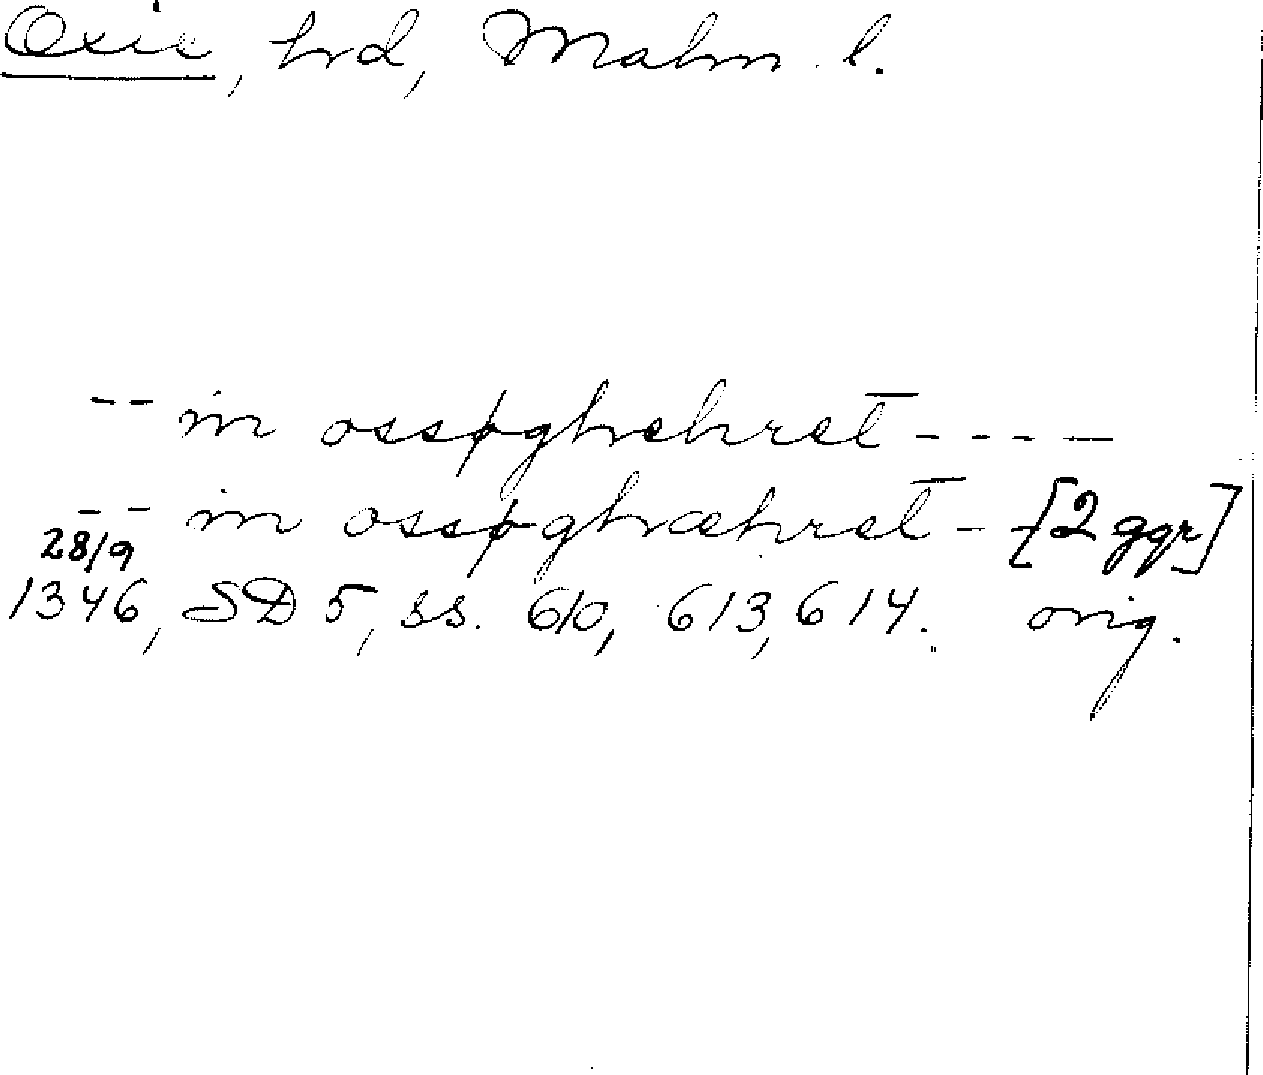 Oxie, hd, Malm. l.
-- in ossøghehret ----
-- in ossøghæhret - [2 ggr]
28/9
1346, SD 5, ss. 610, 613, 614. orig.